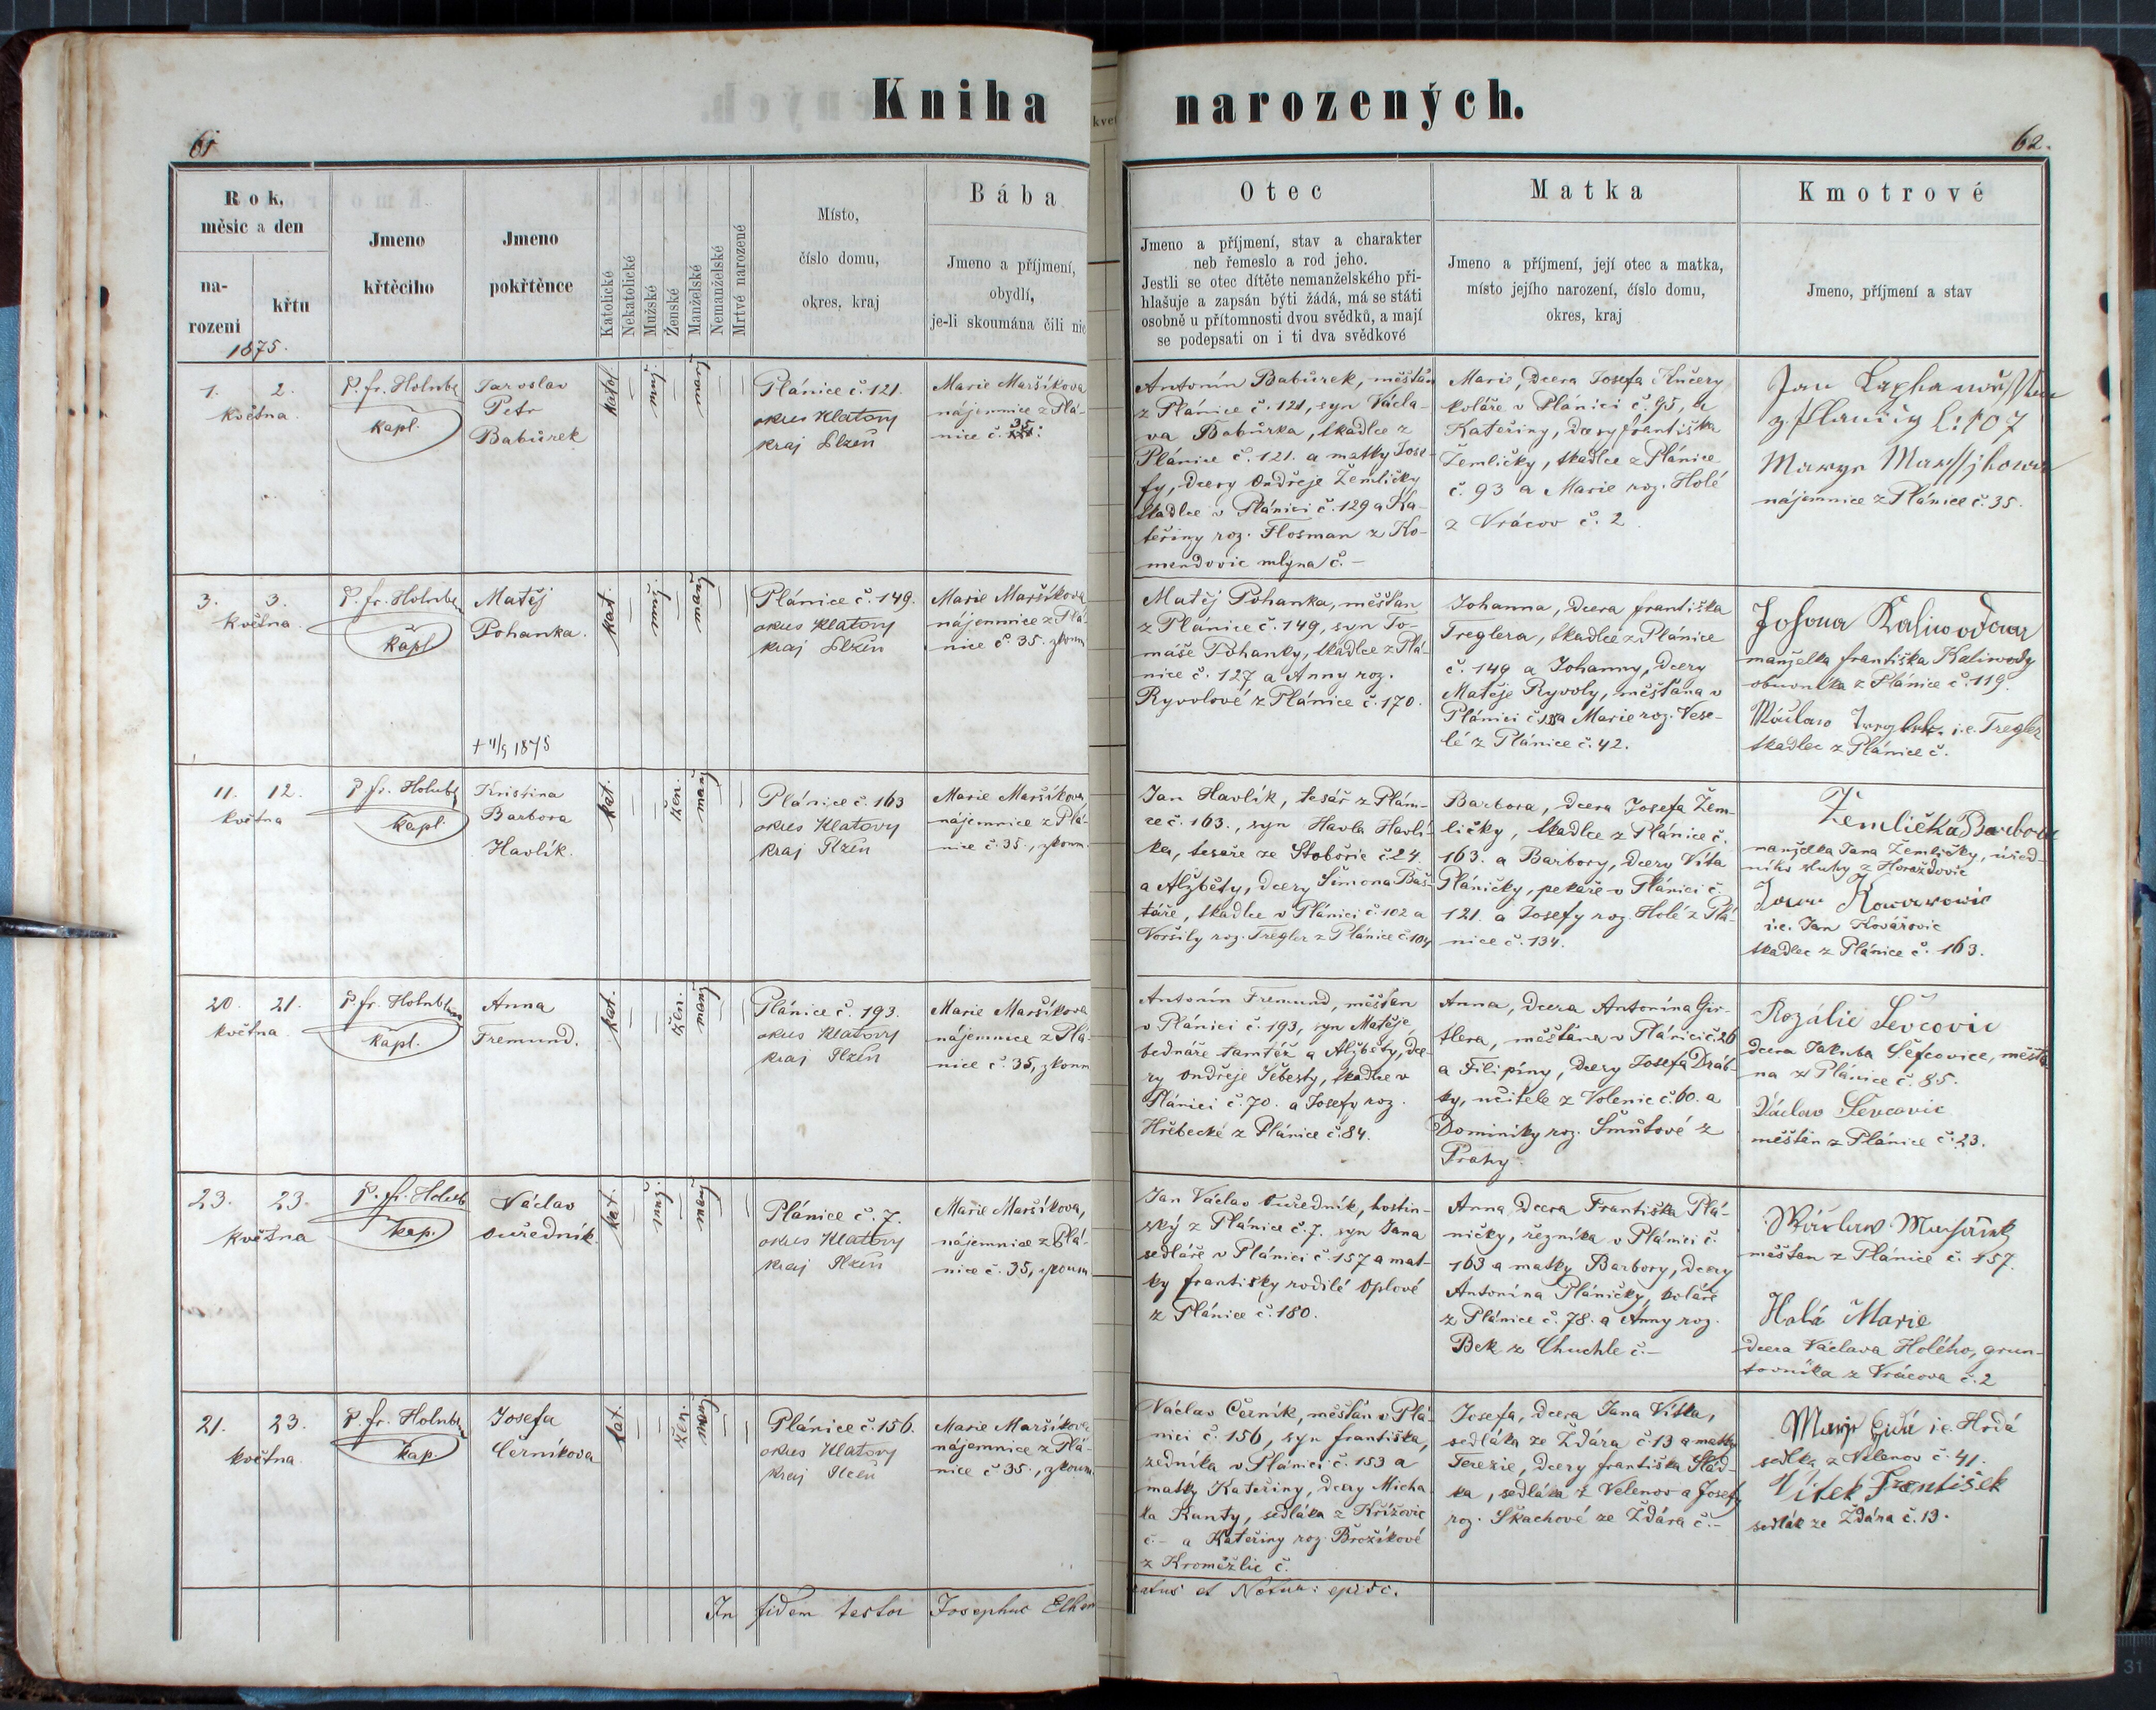 Kniha narozených.
61
62.
Rok, měsíc a den
narození
křtu
Jmeno křtěcího
Jmeno pokřtěnce
Katolické
Nekatolické
Mužské
Ženské
Manželské
Nemanželské
Mrtvé narozené
Místo,
číslo domu,
okres, kraj
Bába
Jmeno a příjmení,
obydlí,
je-li skoumána čili nic
Otec
Jmeno a příjmení, stav a charakter
neb řemeslo a rod jeho.
Jestli se otec dítěte nemanželského při-
hlašuje a zapsán býti žádá, má se státi
osobně u přítomnosti dvou svědků, a mají
se podepsati on i ti dva svědkové
Matka
Jmeno a příjmení, její otec a matka,
místo jejího narození, číslo domu,
okres, kraj
Kmotrové
Jmeno, příjmení a stav
1875.
1. 2.
května
P. fr. Holub
kapl.
Jaroslav
Petr
Babůrek
katol.
muž.
manž.
Plánice č. 121.
okres Klatovy
kraj Plzeň
Marie Maršíkova
nájemnice z Plá-
nice č. 35
Antonín Babůrek, měšťan
z Plánice č. 121, syn Václa-
va Babůrka, tkadlce z
Plánice č. 121. a matky Jose-
fy, dcery Ondřeje Žemličky
tkadlce v Plánici č. 129 a Ka-
teřiny roz. Flosman z Ko-
mendovic mlýna č. –
Marie, dcera Josefa Kučery
koláře v Plánici č. 95, a
Kateřiny, dcery františka
Žemličky, tkadlce z Plánice
č. 93 a Marie roz. Holé
z Vrácov č. 2
Jan
107
nájemnice z Plánice č. 35.
3. 3.
května
P. fr. Holub
kapl.
Matěj
Pohanka.
+ 11/9 1875
kat.
muž.
manž.
Plánice č. 149.
okres Klatovy
kraj Plzeň
Marie Maršíkova
nájemnice z Plá-
nice č. 35. zkoum
Matěj Pohanka, měšťan
z Plánice č. 149, syn To-
máše Pohanky, tkadlce z Plá-
nice č. 127 a Anny roz.
Ryvolové z Plánice č. 170.
Johanna, dcera františka
Treglera, tkadlce z Plánice
č. 149 a Johanny, dcery
Matěje Ryvoly, měšťana v
Plánici č. a Marie roz. Vese-
lé z Plánice č. 42.
manželka františka Kaliwody
obuvníka z Plánice č. 119.
Wáclaw i.e. Tregler
tkadlec z Plánice č.
11. 12.
května
P. fr. Holub
kapl.
Kristina
Barbora
Havlík.
kat.
žen.
manž
Plánice č. 163
okres Klatovy
kraj Plzeň
Marie Maršíkova,
nájemnice z Plá-
nice č. 35., zkoum.
Jan Havlík, tesář z Pláni-
ce č. 163., syn Havla Havlí-
ka, tesaře ze Stobořic č. 24.
a Alžběty, dcery Šimona Baš-
táře, tkadlce v Plánici č. 102 a
Voršily roz. Tregler z Plánice č. 104
Barbora, dcera Josefa Žem-
ličky, tkadlce z Plánice č.
163. a Barbory, dcery Víta
Pláničky, pekaře v Plánici č.
121. a Josefy roz. Holé z Plá-
nice č. 134.
Žemlička Barbora
manželka Jana Žemličky, úřed-
níka sluhy z Horažďovic
i.e. Jan Kovářovic
tkadlec z Plánice č. 163.
20. 21.
května
P. fr. Holub
kapl.
Anna
Fremund.
kat.
žen.
manž
Plánice č. 193.
okres Klatovy
kraj Plzeň
Marie Maršíkova
nájemnice z Plá-
nice č. 35, zkoum
Antonín Fremund, měšťan
v Plánici č. 193, syn Matěje,
bednáře tamtéž a Alžběty, dce-
ry Ondřeje Šebesty, tkadlce v
Plánici č. 70. a Josefy roz.
Hřebecké z Plánice č. 84.
Anna, dcera Antonína Gir-
tlera, měšťana v Plánici č. 26
a Filipíny, dcery Josefa Dráb-
ky, učitele z Volenic č. 60. a
Dominiky roz. Šmůtové z
Prahy
Rozálie Ševcovic
dcera Jakuba Šefcovice, měšťa-
na z Plánice č. 85.
Václav Ševcovic
měštěn z Plánice č. 23.
23. 23.
května
P. fr. Holub
kap.
Václav
Ouředník.
kat.
muž.
manž
Plánice č. 7.
okres Klatovy
kraj Plzeň
Marie Maršíkova,
nájemnice z Plá-
nice č. 35, zkoum
Jan Václav Ouředník, hostin-
ský z Plánice č. 7. syn Jana
sedláře v Plánici č. 157 a mat-
ky františky rodilé Oplové
z Plánice č. 180.
Anna dcera Františka Plá-
ničky, řezníka v Plánici č.
163 a matky Barbory, dcery
Antonína Pláničky, koláře
z Plánice č. 78. a Anny roz.
Bek z Chuchle č. –
měšťan z Plánice č. 157.
Holá Marie
dcera Václava Holého, grun-
tovníka z Vrácova č. 2
21. 23.
května
P. fr. Holub
kap.
Josefa
Černíkova
kat.
žen.
manž
Plánice č. 156.
okres Klatovy
kraj Plzeň
Marie Maršíkova
nájemnice z Plá-
nice č. 35., zkoum.
Václav Černík, měšťan v Plá-
nici č. 156, syn františka,
zedníka v Plánici č. 153 a
matky Kateřiny, dcery Micha-
la Kunty, sedláka z Křížovic
č. – a Kateřiny roz. Brožíkové
z Kroměžlic č.
Josefa, dcera Jana Vítka,
sedláka ze Ždára č. 13 a matky
Terezie, dcery františka Slád-
ka, sedláka z Velenov a Josefy
roz. Skachové ze Ždára č. –
i.e. Hrdá
sedlka z Velenov č. 41.
Vítek František
sedlák ze Ždára č. 13.
In fidem testor Josephus
31